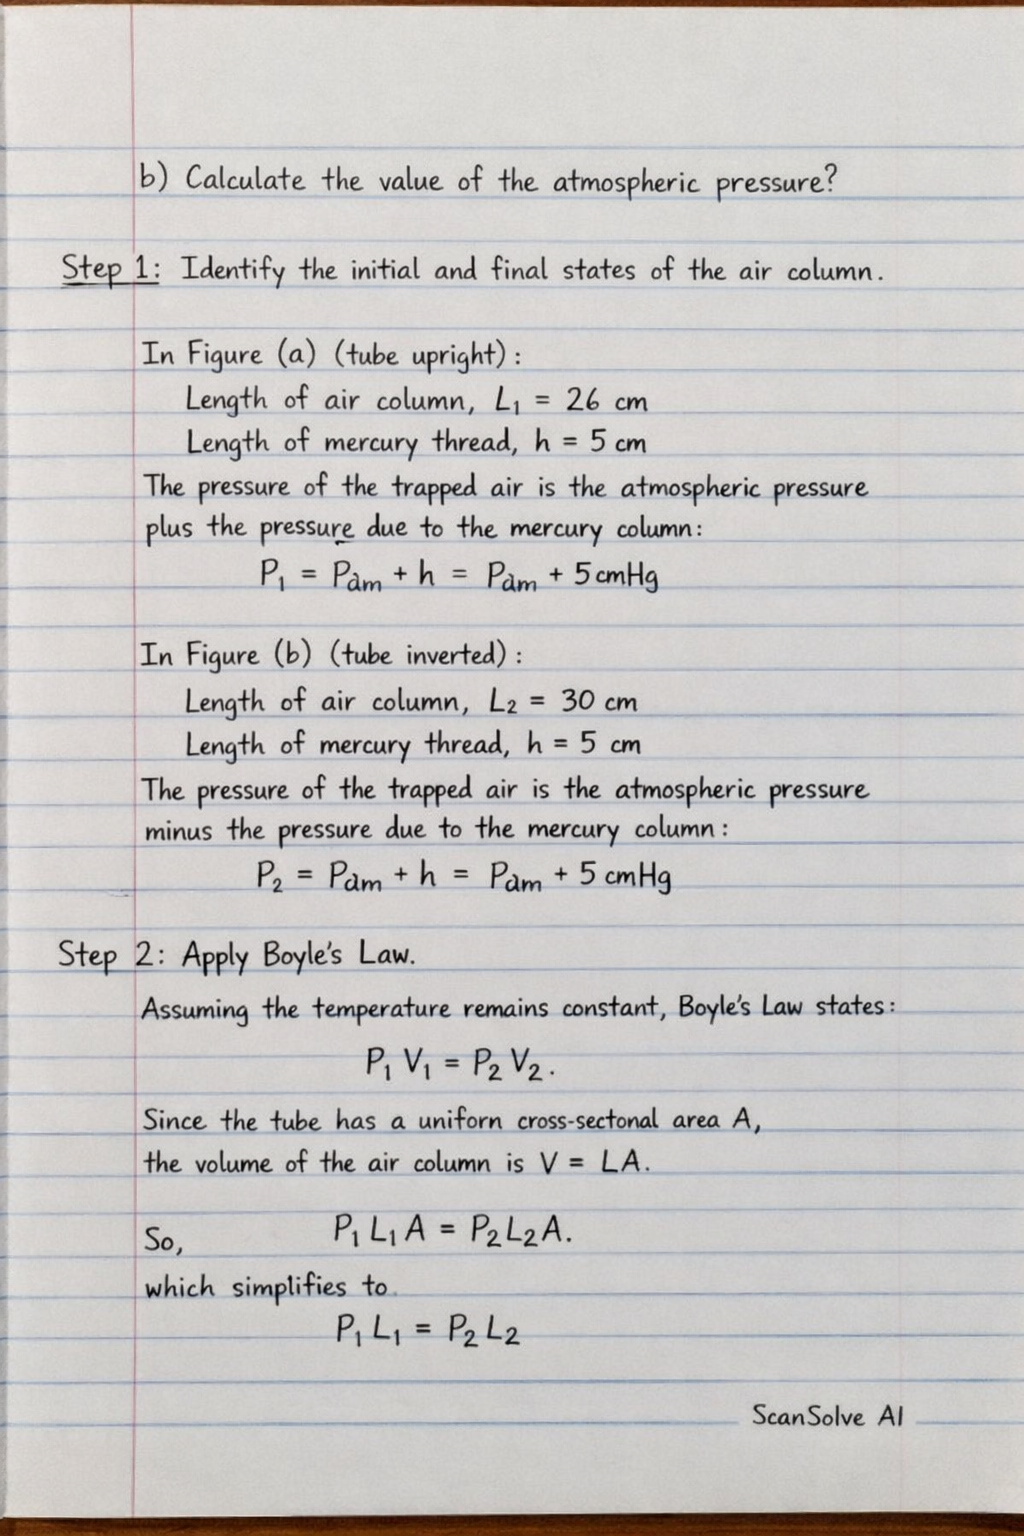 b) Calculate the value of the atmospheric pressure?
Step 1: Identify the initial and final states of the air column.
In Figure (a) (tube upright):
Length of air column, L₁ = 26 cm
Length of mercury thread, h = 5 cm
The pressure of the trapped air is the atmospheric pressure
plus the pressure due to the mercury column:
P₁ = Pàm + h = Pàm + 5 cmHg
In Figure (b) (tube inverted):
Length of air column, L₂ = 30 cm
Length of mercury thread, h = 5 cm
The pressure of the trapped air is the atmospheric pressure
minus the pressure due to the mercury column:
P₂ = Pàm + h = Pàm + 5 cmHg
Step 2: Apply Boyle's Law.
Assuming the temperature remains constant, Boyle's Law states:
P₁ V₁ = P₂ V₂.
Since the tube has a uniforn cross-sectonal area A,
the volume of the air column is V = LA.
So, P₁ L₁ A = P₂ L₂ A.
which simplifies to
P₁ L₁ = P₂ L₂
ScanSolve AI